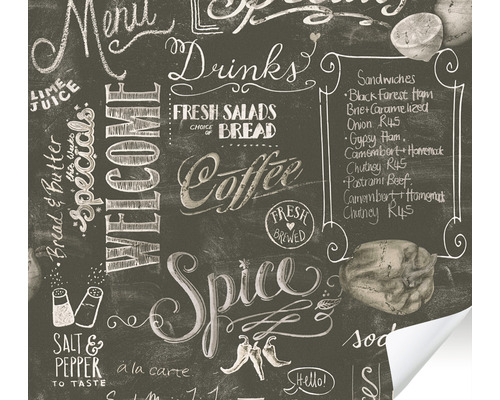 Menu
Drinks
LIME
JUICE
FRESH SALADS
CHOICE
OF
BREAD
WELCOME
Specials
Bread & Butter
Coffee
FRESH
BREWED
Sandwiches
• Black Forest Ham
Brie+Caramelized
Onion R45
• Gypsy Ham,
Camembert+Homemade
Chutney R45
• Pastrami Beef,
Camembert+Homemade
Chutney R45
Spice
SALT &
PEPPER
TO TASTE
à la carte
Hello!